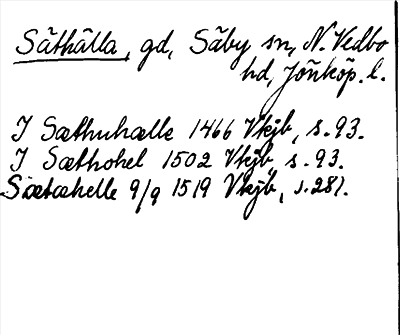 Säthälla, gd, Säby sn, N. Vedbo
hd, Jönköp. l.
I Sæthuhælle 1466 Vkjb, s. 93.
I Sæthohel 1502 Vkjb, s. 93.
Sætæhelle 9/9 1519 Vkjb, s. 281.